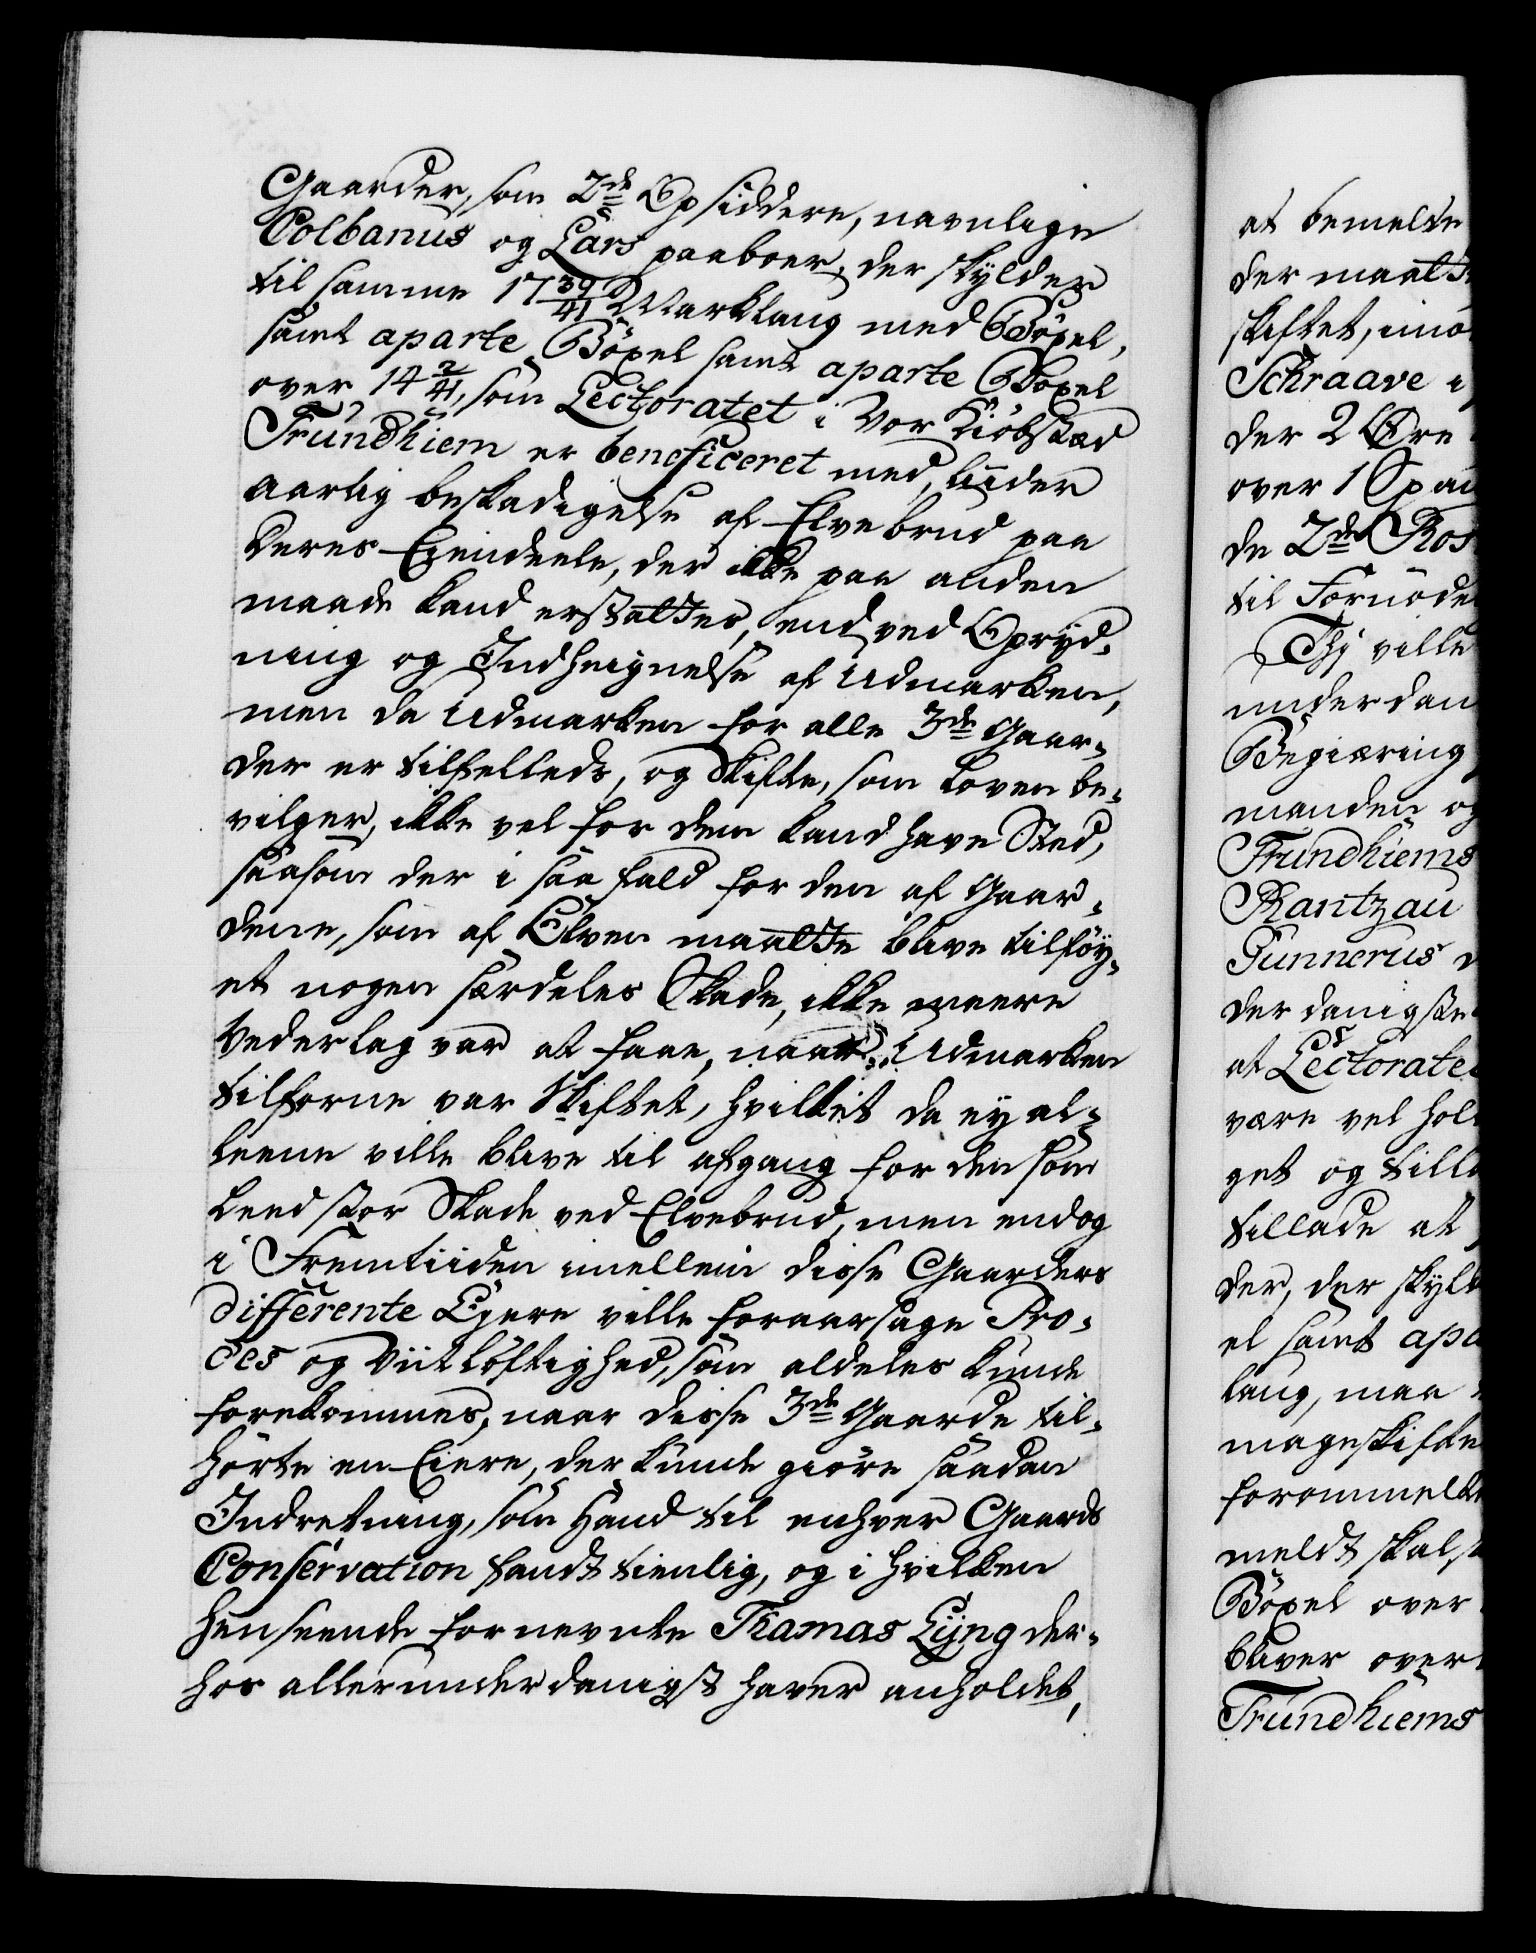 Gaarder, som 2de Opsiddere, navnlige
Colbanus og Lars paaboer, der skylder
til samme 17 39/41 Marklaug med Böxel,
samt aparte Böxel samt aparte Böxel
over 14 2/41, som Lectoratet i Vor Kiöbstæd
Trundhiem er beneficeret med, liider
aarlig beskadigelse af Elvebrud paa
deres Eiendeele, der ikke paa anden
maade kand erstattes, end ved Opryd-
ning og Indheignelse af Udmarken,
men da Udmarken for alle 3de Gaar-
der er tilfelleds, og Skifte, som Loven be-
vilger, ikke vel for dem kand have Sted,
saasom der i saa fald for den af Gaar-
dene, som af Elven maatte blive tilföy-
et nogen særdeles Skade, ikke meere
Vederlag var at faae, naar Udmarken
tilforne var Skiftet, hvilket da ey al-
leene ville blive til afgang for den som
leed stor Skade ved Elvebrud, men endog
i Fremtiiden imellem disse Gaarders
differente Ejere ville foraarsage Pro-
ces og Viitlöftighed, som aldeles kunde
forekommes, naar disse 3de Gaarde til-
hörte en Eiere, der kunde giöre saadan
Indretning, som hand til enhver Gaards
Conservation fandt tienlig, og i hvilken
henseende fornevnte Thamas Lyng der-
hos allerunderdanigst haver anholdet,
at bemelte
der maatte
skiftet, imo
Schraave i
der 2 Øre
over 1 Spa
de 2de Ros
til Fornöde
Thi ville
underdan
Begiæring
manden og
Trundhiems
Rantzau
Gunnerus
der danigste
at Lectorate
være vel hol
get og till
tillade at
der, der skyl
el samt apa
laug, maa
mageskifte
forommelt
meldt skal
Böxel over
bliver over
Trundhiems